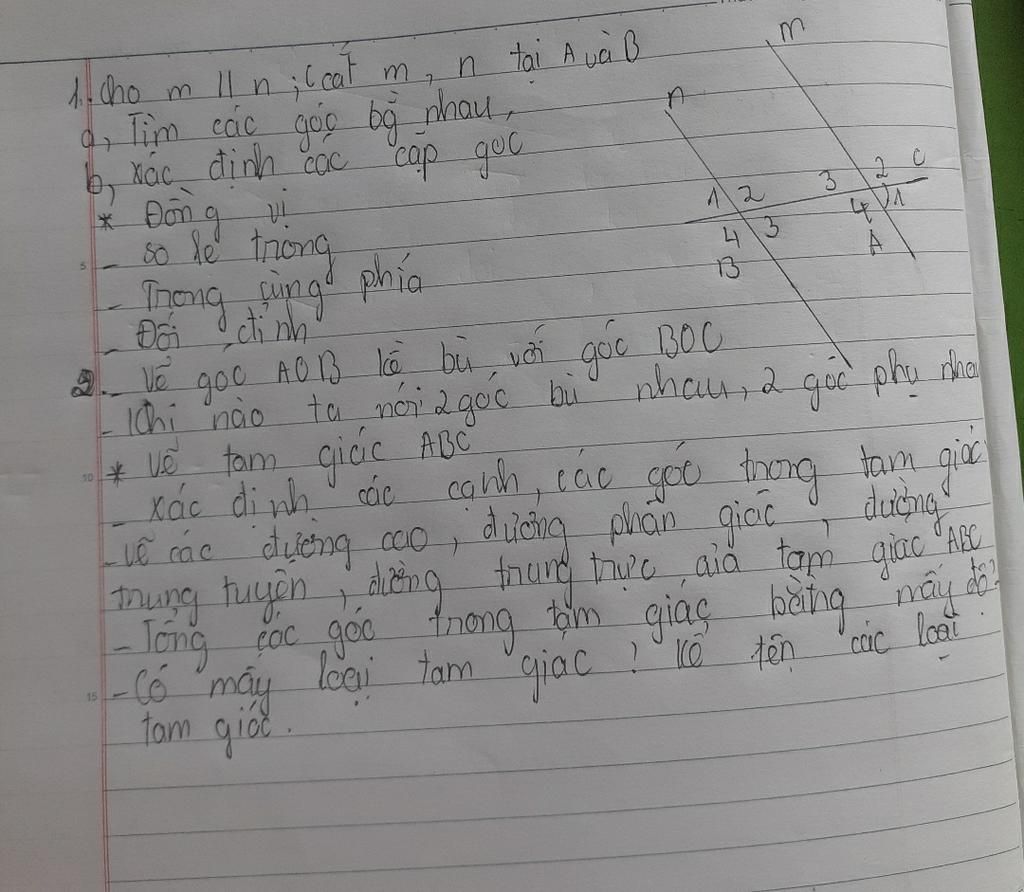 1. Cho m // n ; c cắt m, n tại A và B
a, Tìm các góc bằng nhau,
b, xác định các cặp góc
* Đồng vị
- so le trong
- Trong cùng phía
- Đối đỉnh
2. - Vẽ góc AOB kề bù với góc BOC
- Khi nào ta nói 2 góc bù nhau, 2 góc phụ nhau
* Vẽ tam giác ABC
- xác định các cạnh, các góc trong tam giác
- vẽ các đường cao, đường phân giác, đường
trung tuyến, đường trung trực của tam giác ABC
- Tổng các góc trong tam giác bằng mấy độ?
- Có mấy loại tam giác? Kể tên các loại
tam giác.
m
n
1 2 3 2 c
4 3 4 1
B A